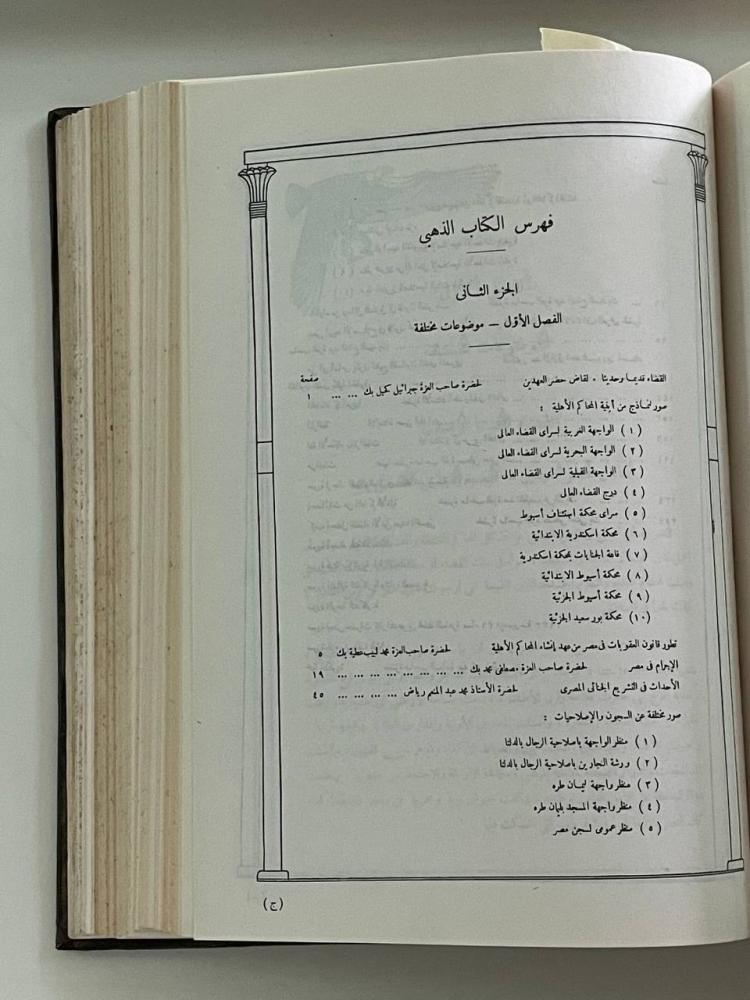 فهرس الكتاب الذهبي
الجزء الثانى
الفصل الأول — موضوعات مختلفة
صفحة
القضاء قديما وحديثا . لقاض حضر العهدين لحضرة صاحب العزة جبرائيل كحيل بك ... ... ١
صور نماذج من أبنية المحاكم الأهلية :
(١) الواجهة الغربية لسراى القضاء العالى
(٢) الواجهة البحرية لسراى القضاء العالى
(٣) الواجهة القبلية لسراى القضاء العالى
(٤) درج القضاء العالى
(٥) سراى محكمة استئناف أسيوط
(٦) محكمة اسكندرية الابتدائية
(٧) قاعة الجنايات بمحكمة اسكندرية
(٨) محكمة أسيوط الابتدائية
(٩) محكمة أسيوط الجزئية
(١٠) محكمة بور سعيد الجزئية
تطور قانون العقوبات فى مصر من عهد إنشاء المحاكم الأهلية لحضرة صاحب العزة محمد لبيب عطية بك ٥
الإجرام فى مصر لحضرة صاحب العزة مصطفى محمد بك ... ... ... ... ... ... ... ... ١٩
الأحداث فى التشريع الجنائى المصرى لحضرة الأستاذ محمد عبد المنعم رياض ... ... ... ... ٤٥
صور مختلفة عن السجون والإصلاحيات :
(١) منظر الواجهة باصلاحية الرجال بالدلتا
(٢) ورشة النجارين باصلاحية الرجال بالدلتا
(٣) منظر واجهة ليمان طره
(٤) منظر واجهة المسجد بليمان طره
(٥) منظر عمومى لسجن مصر
(ج)